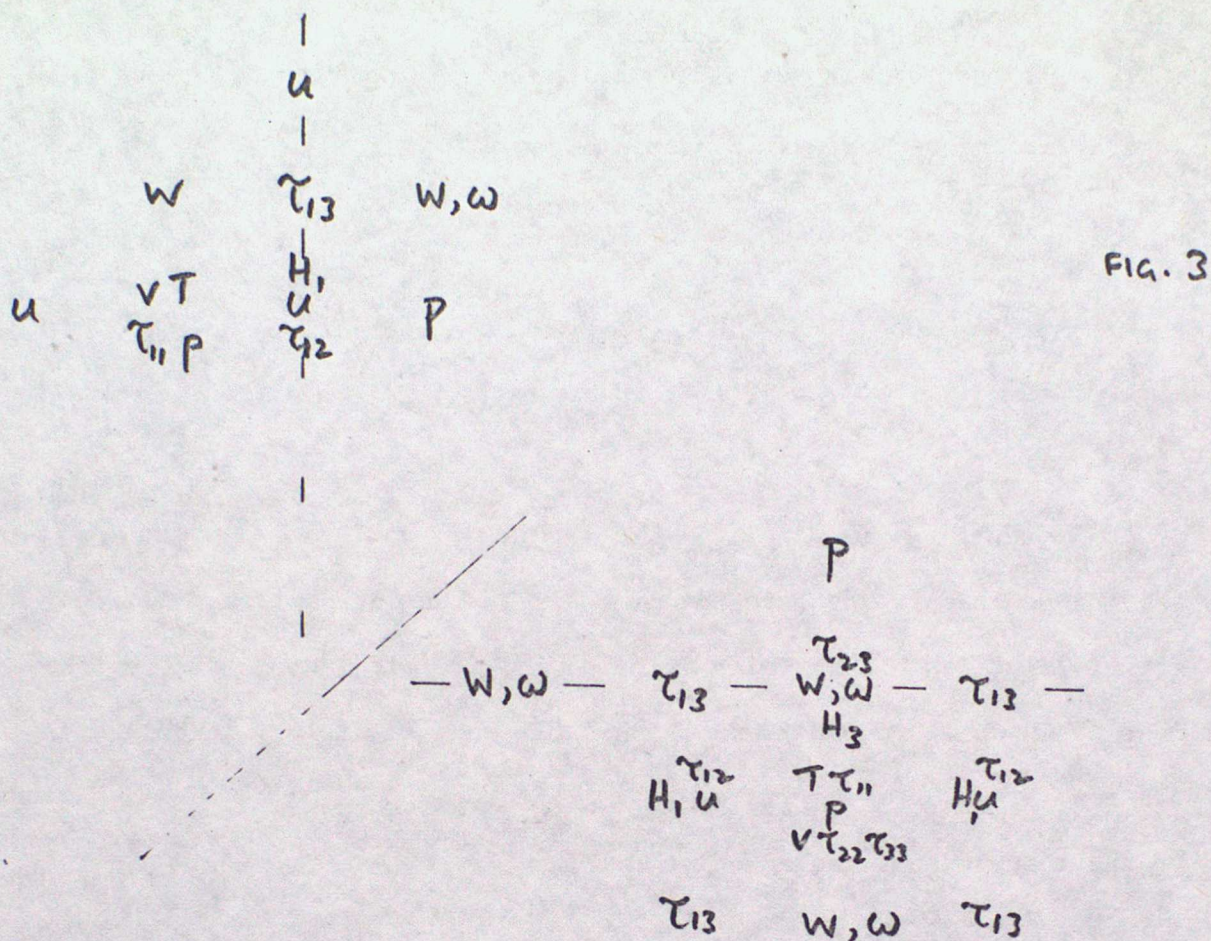 u
W τ₁₃ W,ω
H₁
v T u
u P
τ₁₁ p τ₁₂
FIG. 3
P
τ₂₃
W,ω τ₁₃ W,ω τ₁₃
H₃
τ₁₂ T τ₁₁ τ₁₂
H₁ u p H₁ u
v τ₂₂ τ₃₃
τ₁₃ W,ω τ₁₃